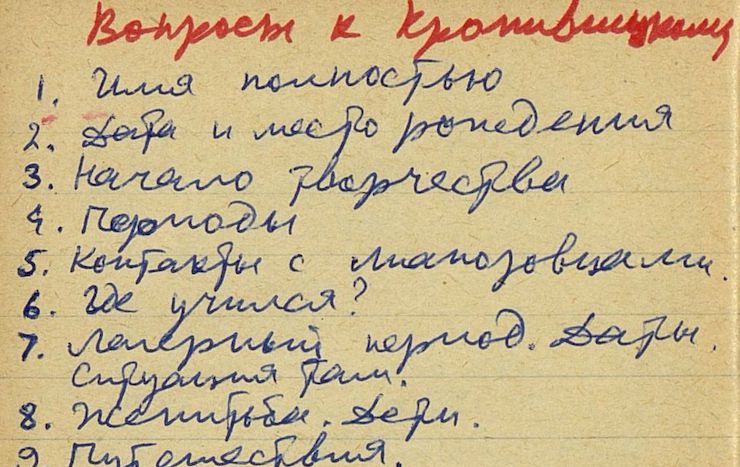 Вопросы к Кропивницкому
1. Имя полностью
2. Дата и место рождения
3. Начало творчества
4. Периоды
5. Контакты с лианозовцами.
6. Где учился?
7. Лагерный период. Даты.
Ситуация там.
8. Женитьба. Дети.
9 Путешествия.